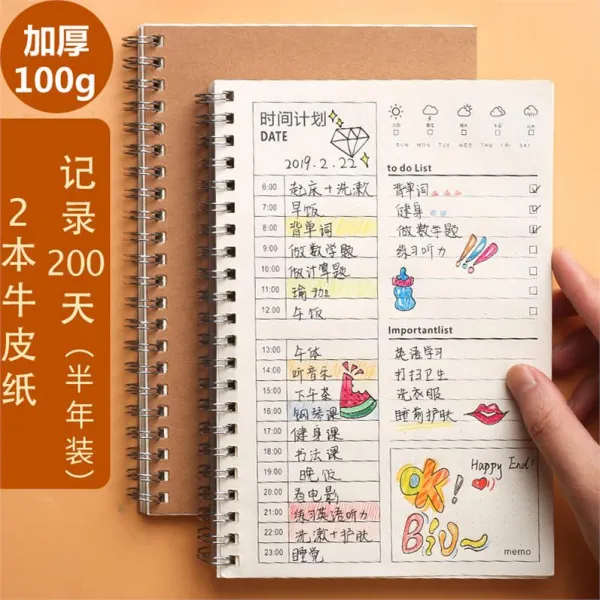 加厚
100g
记录200天（半年装）
2本牛皮纸
时间计划
DATE
2019.2.22
6:00 起床+洗漱
7:00 早饭
8:00 背单词
9:00 做数学题
10:00 做计算题
11:00 瑜加
12:00 午饭
13:00 午休
14:00 听音乐
15:00 下午茶
16:00 钢琴课
17:00 健身课
18:00 书法课
19:00 晚饭
20:00 看电影
21:00 练习英语听力
22:00 洗漱+护肤
23:00 睡觉
SUN MON TUE WED THU FRI SAT
to do List
背单词
健身
做数学题
练习听力
Importantlist
英语学习
打扫卫生
洗衣服
睡前护肤
OK!
Happy End!
Biu~
memo